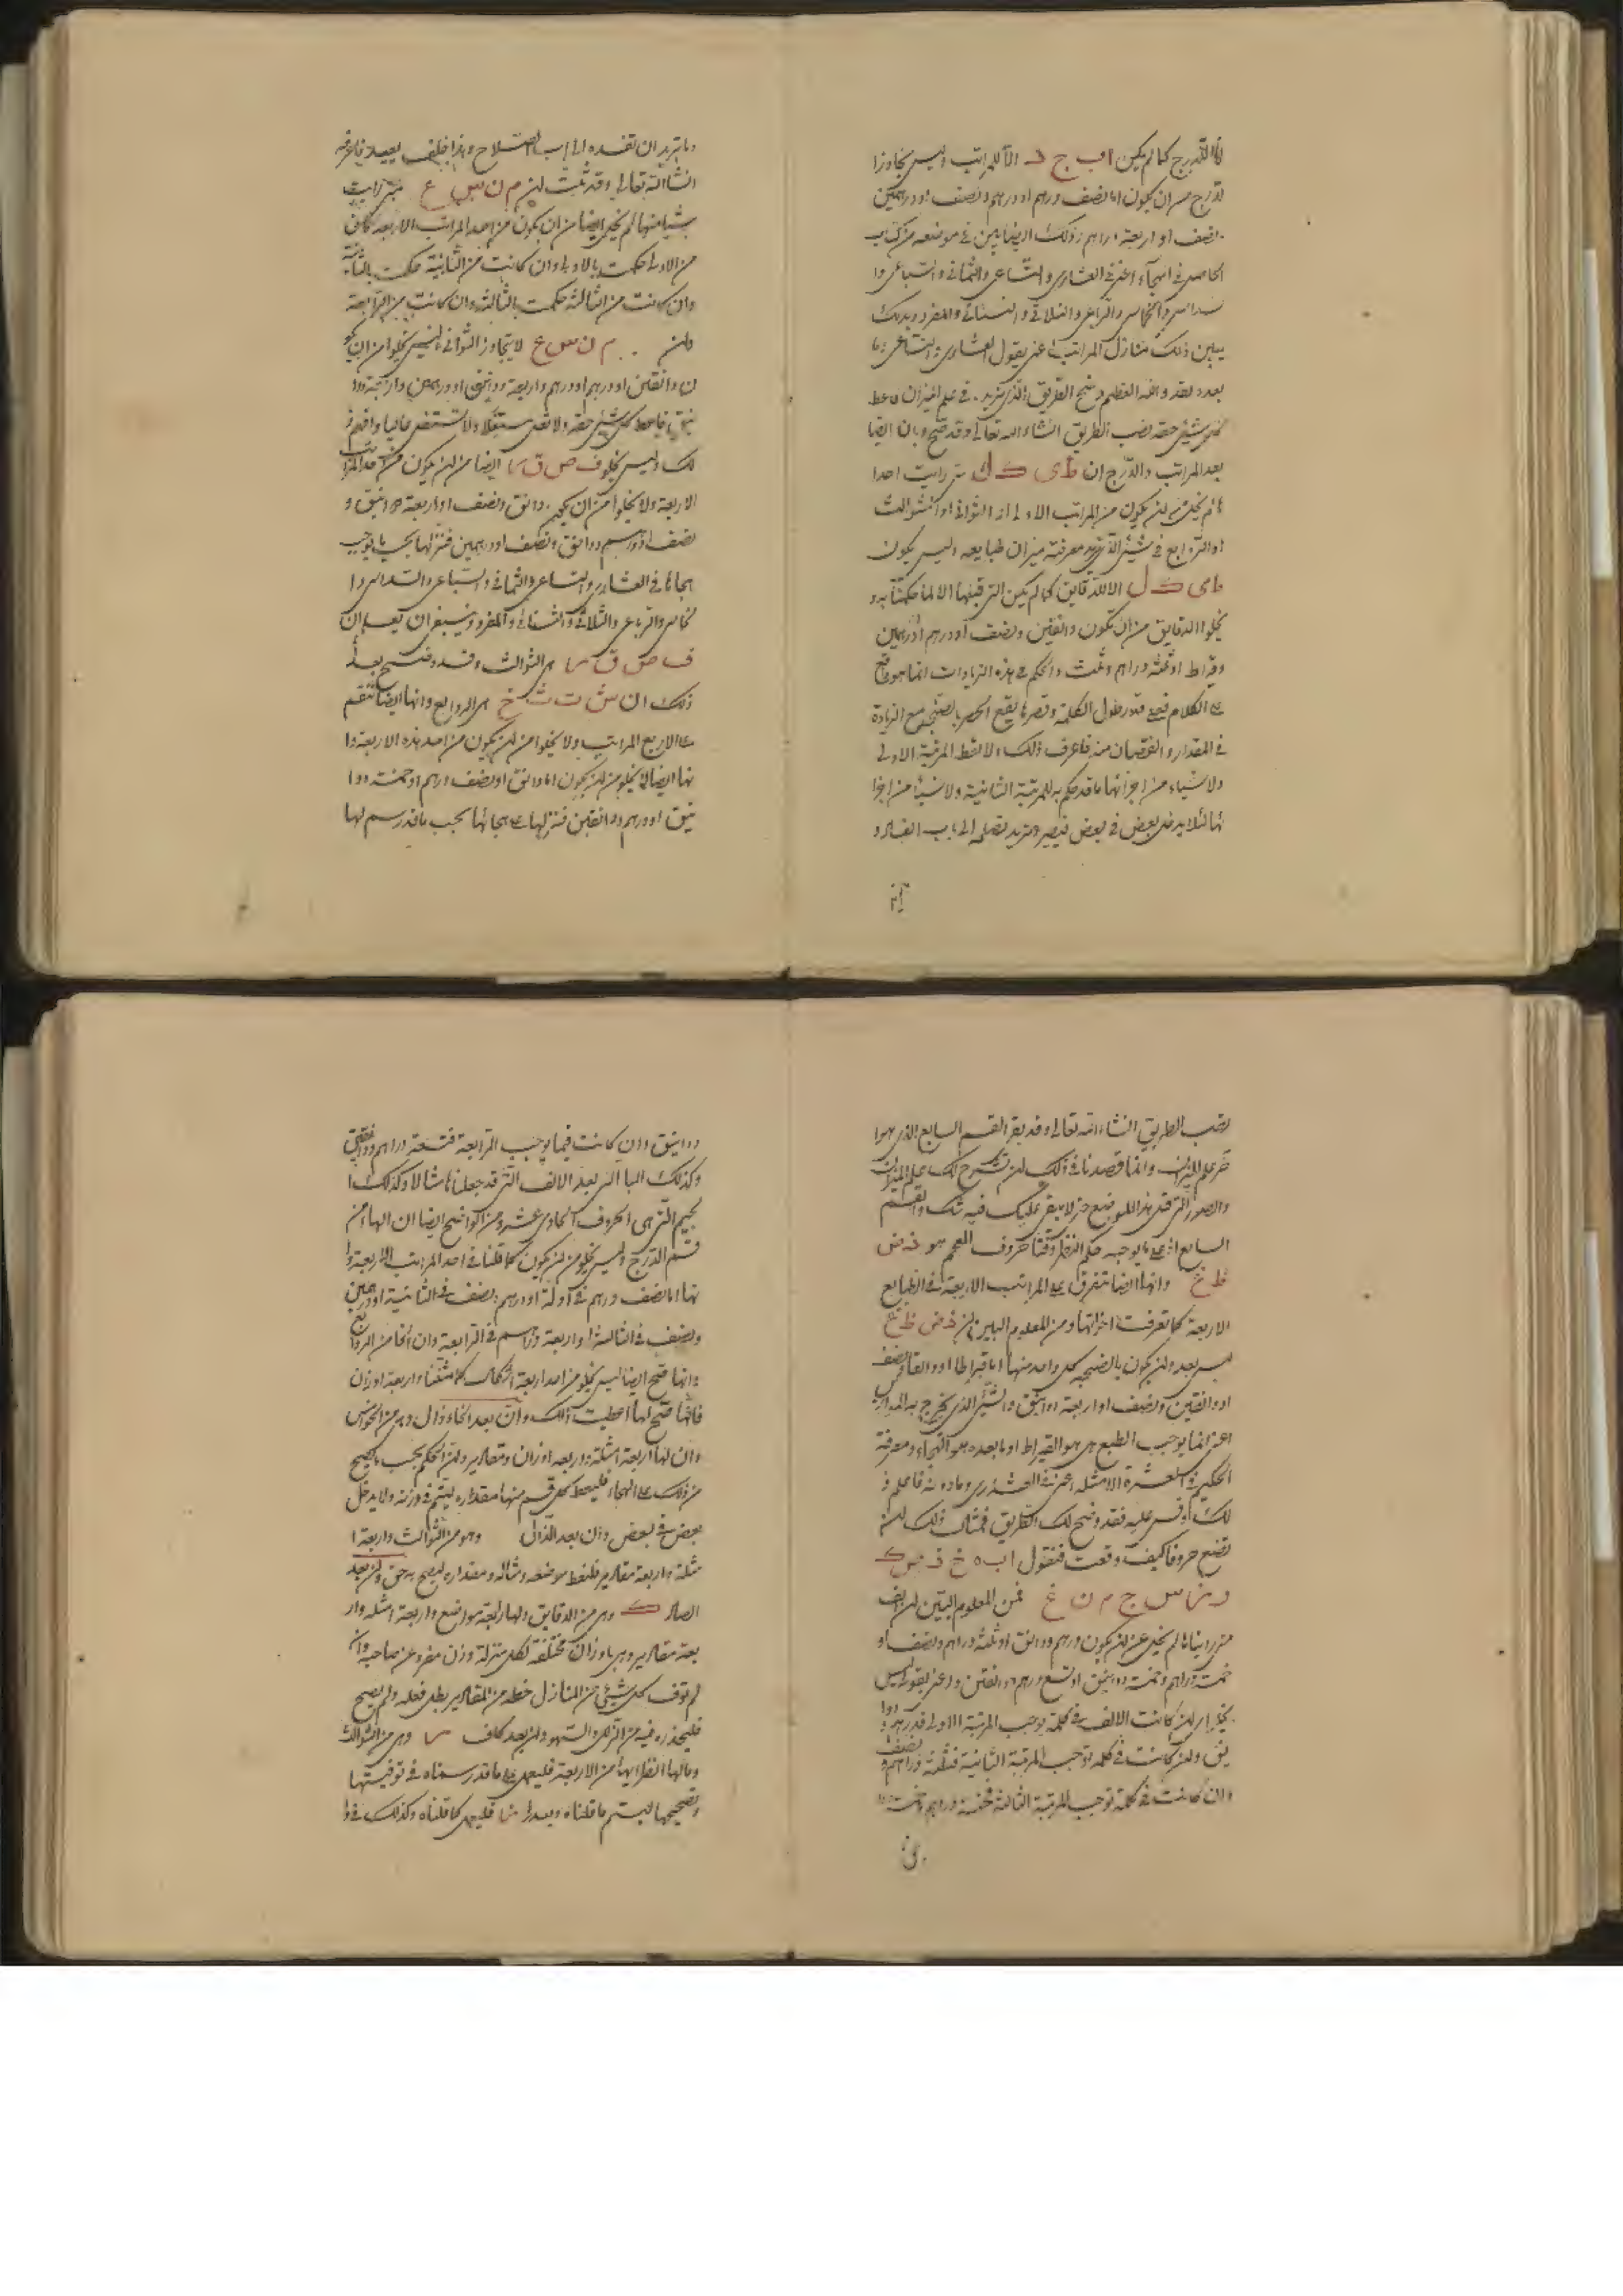 للدرج كما لم يكن ا ب ج د الا للمراتب وليس يجاوز ا
لدرج من ان يكون اما نصف درهم او درهم ونصف او درهمين
ونصف او اربعة دراهم وذلك ايضا يبين في موضعه من كتاب
الحاصل في الهجاء اعني في العشاري والتساعي والثماني والسباعي وا
لسداسي والخماسي والرباعي والثلاثي والثنائي والمفرد وبذلك
يبين ذلك منازل المراتب اعني بقول العشاري والتساعي وما
بعده فقد والله العظيم وضح الطريق الذي تريد في علم الميزان فاعط
كل شيء حقه تصب الطريق انشاء الله تعالى وقد صح وبان ايضا
بعد المراتب والدرج ان ط ى ك ل متى رايت احدا
لم يخل من ان يكون من المراتب الاولى او الثواني او الثوالث
او الروابع في شيء الذي تريد معرفة ميزان طبايعه وليس يكون
ط ى ك ل الا للدقايق كما لم يكن التي قبلها الا لما حكمنا به و
يخلوا الدقايق من ان تكون دانقين ونصف او درهم او درهمين
وقيراط او ثلثة دراهم وثلث والحكم في هذه الزيادات انما هو واقع
على الكلام فعلى قدر طول الكلمة وقصرها يقع الحصر بالصحيح مع الزيادة
في المقدار والنقصان منه فاعرف ذلك ولا تعط المرتبة الاولى
ولا شياء من اجزائها ما قد حكم به للمرتبة الثانية ولا شيئا من اجزا
ئها لئلا يدخل بعض في بعض فيصير ما تريد تصلحه الى باب الفساد و
وما تريد ان تفسده الى باب الصلاح وهذا خلف بعيد فاعرفه
انشاالله تعالى وقد ثبت ان م ن س ع متى رايت
شيئا منها لم يخل ايضا من ان يكون من احد المراتب الاربعة فان كانت
من الاولى حكمت بالاولى وان كانت من الثانية حكمت بالثانية
وان كانت من الثالثة حكمت بالثالثة وان كانت من الرابعة
وان م ن س ع لا يتجاوز الثواني وليس يخلوا من ان يكو
ن دانقين او درهم او درهم واربعة دوانيق او درهمين واربعة دوا
نيق فاعط كل شيء حقه
لك وليس يخلو ف ص ق ر ايضا من ان يكون من احد المراتب
الاربعة ولا يخلوا من ان يكون دانق ونصف او اربعة دوانيق و
نصف او درهم ودانق ونصف او درهمين فتنزلها بحسب ما يوجب
هجائها في العشاري والتساعي والثماني والسباعي والسداسي وا
لخماسي والرباعي والثلاثي والثنائي والمفرد وينبغي ان يعلم ان
ف ص ق ر هي الثوالث وقد وضح بعد
ذلك ان ش ت ث خ هي الروابع وانها ايضا تنقسم
على الاربع المراتب ولا يخلوا من ان يكون من احد هذه الاربعة وا
نها ايضا لا يخلو من ان يكون اما دانق او نصف درهم او خمسة دوا
نيق او درهم ودانقين فتنزلها على هجائها بحسب ما قد رسم لها
تصب الطريق انشاء الله تعالى وقد بقي القسم السابع الذي هو ا
خر علم الميزان وانما قصدنا في ذلك ان نشرح لك علم الميزان
والصور التي في هذا الموضع حتى لا يبقى عليك فيه شك والقسم
السابع على ما يوجبه حكم النظر وقتنا حروف المعجم هو ذ ض
ظ غ وانها ايضا تتفرق على المراتب الاربعة في الطبايع
الاربعة كما تعرفت اخواتها ومن المعلوم البين ان ذ ض ظ غ
ليس يعدو ان يكون بالصحيح كل واحد منها اما قيراطا او دانقا ونصف
او دانقين ونصف او اربعة دوانيق والشيء الذي يخرج به المراتب
اعني انما يوجب الطبع هو القيراط او ما بعده هو الهجاء ومعرفة
الحكم في العشرة الامثلة اعني في العشاري وما دونه فاعلم ذ
لك وقس عليه فقد وضح لك الطريق فمثال ذلك ان
تضع حروفا كيف وقعت فنقول ا ب ه خ ذ ص ك
د ر س ج م ن غ فمن المعلوم البين ان الف
متى رايناها لم يخل من ان يكون درهم ودانق او ثلثة دراهم ونصف او
خمسة دراهم وخمسة دوانيق او تسع درهم ودانقين واعني بقولي ليس
يخلو اي ان كانت الالف في كلمة يوجب المرتبة الاولى فدرهم ودا
نق وان كانت في كلمة توجب المرتبة الثانية فثلثة دراهم ونصف
وان كانت في كلمة توجب المرتبة الثالثة فخمسة دراهم وخمسة
دوانيق وان كانت فيما يوجب الرابعة فتسعة دراهم ودانقين
وكذلك الباء التي بعد الالف التي قد جعلناها مثالا وكذلك ا
لجيم التي هي الحروف الحادى عشر ومن الواضح ايضا ان الهاء من
قسم الدرج وليس يخلو من ان يكون كما قلنا في احد المراتب الاربعة وا
نها اما نصف درهم في اوله او درهم ونصف في الثانية او درهمين
ونصف في الثالثة او اربعة دراهم في الرابعة وان الخا من الروابع
وانها صح ايضا ليس يخلو من احد اربعة اشكال كما مثلنا واربعة اوزان
فايها صح لها اعطيت ذلك وان بعد الخاء ذال وهي من الخوامس
وان لها اربعة امثلة واربعة اوزان ومقادير وان الحكم بحسب ما يصح
من ذلك على الهجاء فليعط كل قسم منها مقداره ليتم في وزنه ولا يدخل
بعض في بعض وان بعد الذال وهو من الثوالث واربعة ا
مثلة واربعة مقادير فلتعط موضعه ومثاله ومقداره ليصح به حق وان بعد
الصاد ك وهي من الدقايق ولها اربعة مواضع واربعة امثلة وار
بعة مقادير وهي باوزان مختلفة لكل منزلة وزن مفرد عن صاحبه وان
لم توف كل شيء من المنازل حظه من المقادير بطل فعله ولم يصح
فليحذر فيه من الزلل والسهو وان بعد كاف ر وهي من الثوالث
ومالها انظر ايها من الاربعة فليعمل على ما قد رسمناه في توفيتها
وتصحيحها ليتم ما قلناه وبعد ر س فليعمل كما قلناه وكذلك في ا